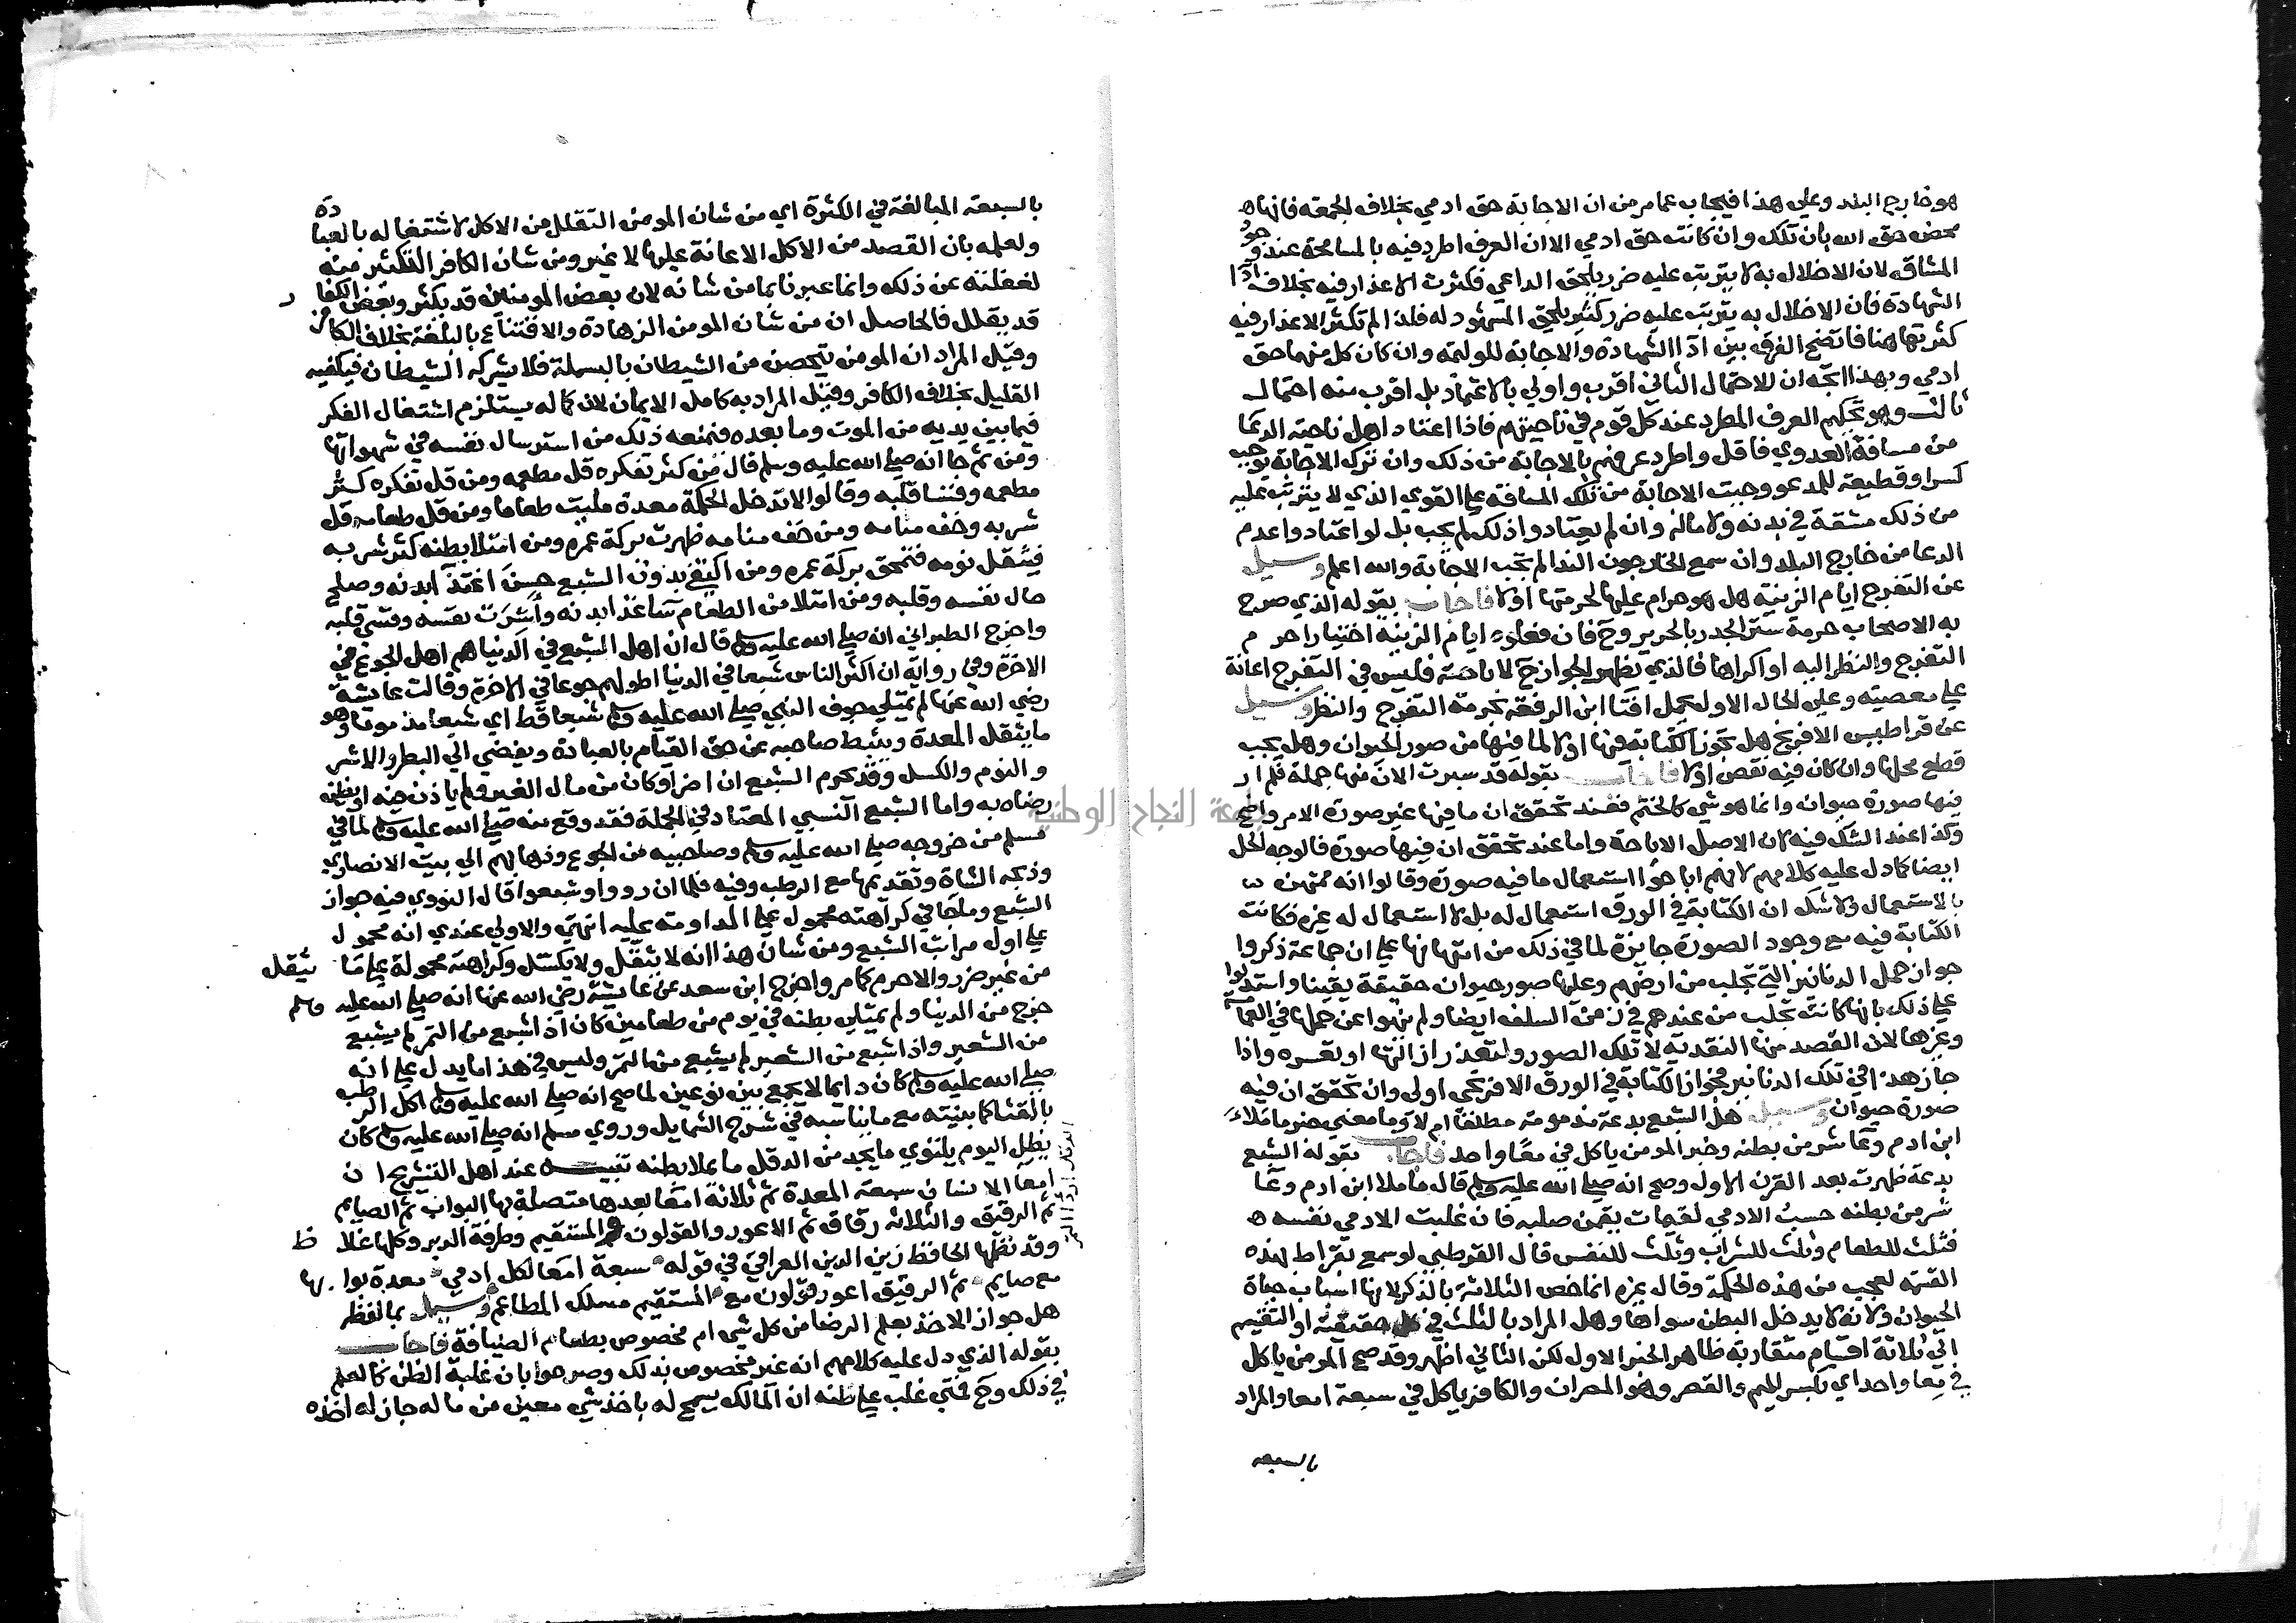 هو خارج البلد وعلى هذا فيجاب عما مر من ان الاجابة حق ادمي بخلاف الجمعة فانها
محض حق الله بان تلك وان كانت حق ادمي الا ان العرف اطرد فيه بالمسامحة عند وجود
المشاق لان الاخلال به لا يترتب عليه ضرر يلحق الداعي فكثرت الاعذار فيه بخلاف ادا
الشهادة فان الاخلال به يترتب عليه ضرر كثير يلحق المشهود له فلذا لم تكثر الاعذار فيه
كثرتها هنا فاتضح الفرق بين ادا الشهادة والاجابة للوليمة وان كان كل منهما حق
ادمي وبهذا اتجه ان الاحتمال الثاني اقرب واولي بالاعتماد بل اقرب منه احتمال
ثالث وهو تحكيم العرف المطرد عند كل قوم في ناحيتهم فاذا اعتاد اهل ناحية الدعا
من مسافة العدوي فاقل واطرد عرفهم بالاجابة من ذلك وان ترك الاجابة يوجب
كسرا وقطيعة للمدعو وجبت الاجابة من تلك المسافة على القوي الذي لا يترتب عليه
من ذلك مشقة في بدنه ولا ماله وان لم يعتادوا ذلك لم يجب بل لو اعتادوا عدم
الدعا من خارج البلد وان سمع الخارجون الندا لم تجب الاجابة والله اعلم وسيل
عن التفرج ايام الزينة هل هو حرام عليها لحرمتها اولا فاجاب بقوله الذي صرح
به الاصحاب حرمة ستر الجدر بالحرير وح فان فعلوه ايام الزينة اختيارا حرم
التفرج والنظر اليه او اكراها فالذي يظهر الجواز ح لاباحته فليس في التفرج اعانة
على معصية وعلى الحال الاول يحمل افتا ابن الرفعة بحرمة التفرج والنظر وسيل
عن قراطيس الافرنج هل تجوز الكتابة فيها اولا لما فيها من صور الحيوان وهل يجب
قطع محلها وان كان فيه نقص اولا فاجاب بقوله قد سبرت الان منها جملة فلم ار
فيها صورة حيوان وانما هو شي كالختم فعند تحقق ان ما فيها غير صورة الامر واضح
وكذا عند الشك فيه لان الاصل الاباحة واما عند تحقق ان فيها صورة فالوجه الحل
ايضا كما دل عليه كلامهم لانهم اباحوا استعمال ما فيه صورة وقالوا انه ممتهن
بالاستعمال ولا شك ان الكتابة في الورق استعمال له بل لا استعمال له غيره فكانت
الكتابة فيه مع وجود الصورة جايزة لما في ذلك من امتهانها على ان جماعة ذكروا
جواز حمل الدنانير التي تجلب من ارضهم وعليها صور حيوان حقيقة يقينا واستدلوا
على ذلك بانها كانت تجلب من عندهم في زمن السلف ايضا ولم ينهوا عن حملها في العمامة
وغيرها لان القصد منها النقدية لا تلك الصور ولتعذر ازالتها او تعسره واذا
جاز هذا في تلك الدنانير فجواز الكتابة في الورق الافرنجي اولى وان تحقق ان فيه
صورة حيوان وسيل هل الشبع بدعة مذمومة مطلقا ام لا وما معني خبر ما ملا
ابن ادم وعا شر من بطنه وخبر المومن ياكل في معا واحد فاجاب بقوله الشبع
بدعة ظهرت بعد القرن الاول وصح انه صلي الله عليه وسلم قال ما ملا ابن ادم وعا
شر من بطنه حسب الادمي لقيمات يقمن صلبه فان غلبت الادمي نفسه
فثلث للطعام وثلث للشراب وثلث للنفس قال القرطبي لو سمع بقراط بهذه
القسمة لعجب من هذه الحكمة وقال غيره انما خص الثلاثة بالذكر لانها اسباب حياة
الحيوان ولانه لا يدخل البطن سواها وهل المراد بالثلث في حقيقته او التقسيم
الى ثلاثة اقسام متقاربة ظاهر الخبر الاول لكن الثاني اظهر وقد صح المومن ياكل
في معا واحد اي بكسر الميم والقصر وهو المصران والكافر ياكل في سبعة امعا والمراد
بالسبعة
بالسبعة المبالغة في الكثرة اي من شان المومن التقلل من الاكل لاشتغاله بالعبادة
ولعلمه بان القصد من الاكل الاعانة عليها لا غير ومن شان الكافر التكثير منه
لغفلته عن ذلك وانما عبرنا بما من شانه لان بعض المومنين قد يكثر وبعض الكفار
قد يقلل فالحاصل ان من شان المومن الزهادة والاقتناع بالبلغة بخلاف الكافر
وقيل المراد ان المومن يتحصن من الشيطان بالبسملة فلا يشركه الشيطان فيكفيه
القليل بخلاف الكافر وقيل المراد به كامل الايمان لان كماله يستلزم اشتغال الفكر
فيما بين يديه من الموت وما بعده فتمنعه ذلك من استرسال نفسه في شهواتها
ومن ثم جا انه صلي الله عليه وسلم قال من كثر تفكره قل مطعمه ومن قل تفكره كثر
مطعمه وقسا قلبه وقالوا لا تدخل الحكمة معدة مليت طعاما ومن قل طعامه قل
شربه وخف منامه ومن خف منامه ظهرت بركة عمره ومن امتلا بطنه كثر شربه
فيثقل نومه فتمحق بركة عمره ومن اكتفي بدون الشبع حسن اغتذا بدنه وصلح
حال نفسه وقلبه ومن امتلا من الطعام ساء غذا بدنه واشرت نفسه وقسي قلبه
واخرج الطبراني انه صلي الله عليه وسلم قال ان اهل الشبع في الدنيا هم اهل الجوع في
الاخرة وفي رواية ان اكثر الناس شبعا في الدنيا اطولهم جوعا في الاخرة وقالت عايشة
رضي الله عنها لم يمتلي جوف النبي صلي الله عليه وسلم شبعا قط اي شبعا مذموما وهو
ما يثقل المعدة ويثبط صاحبه عن حق القيام بالعبادة ويفضي الي البطر والاشر
والنوم والكسل وقد يحرم الشبع ان اضر او كان من مال الغير ولم ياذن فيه او يظن
رضاه به واما الشبع النسبي المعتاد في الجملة فقد وقع منه صلي الله عليه وسلم لما في
مسلم من خروجه صلي الله عليه وسلم وصاحبيه من الجوع وذهابهم الي بيت الانصاري
وذبحه الشاة وتقديمها مع الرطب وفيه فلما ان رووا وشبعوا قال النووي فيه جواز
الشبع وما جا في كراهته محمول على المداومة عليه انتهي والاولي عندي انه محمول
على اول مراتب الشبع ومن شان هذا انه لا يثقل ولا يكسل وكراهته محمولة على ما يثقل
من غير ضرر والا حرم كما مر واخرج ابن سعد عن عايشة رضي الله عنها انه صلي الله عليه وسلم
خرج من الدنيا ولم يمتلي بطنه في يوم من طعامين كان اذا شبع من التمر لم يشبع
من الشعير واذا شبع من الشعير لم يشبع من التمر وليس في هذا ما يدل على انه
صلي الله عليه وسلم كان دايما لا يجمع بين نوعين لما صح انه صلي الله عليه وسلم اكل الرطب
بالقثا كما بينته مع ما يناسبه في شرح الشمايل وروي مسلم انه صلي الله عليه وسلم كان
يظل اليوم يلتوي ما يجد من الدقل ما يملا بطنه تنبيه عند اهل التشريح ان
امعا الانسان سبعة المعدة ثم ثلاثة امعا بعدها متصلة بها البواب ثم الصايم
ثم الرقيق والثلاثه رقاق ثم الاعور والقولون والمستقيم وطرفه الدبر وكلها غلاظ
وقد نظمها الحافظ زين الدين العراقي في قوله سبعة امعا لكل ادمي معدة بوابها
مع صايم ثم الرقيق اعور قولون مع المستقيم مسلك المطاعم وسيل بما لفظه
هل جواز الاخذ بعلم الرضا من كل شي ام مخصوص بطعام الضيافة فاجاب
بقوله الذي دل عليه كلامهم انه غير مخصوص بذلك وصرحوا بان غلبة الظن كالعلم
في ذلك وح فمتي غلب على ظنه ان المالك يسمح له باخذ شي معين من ماله جاز له اخذه
جامعة النجاح الوطنية